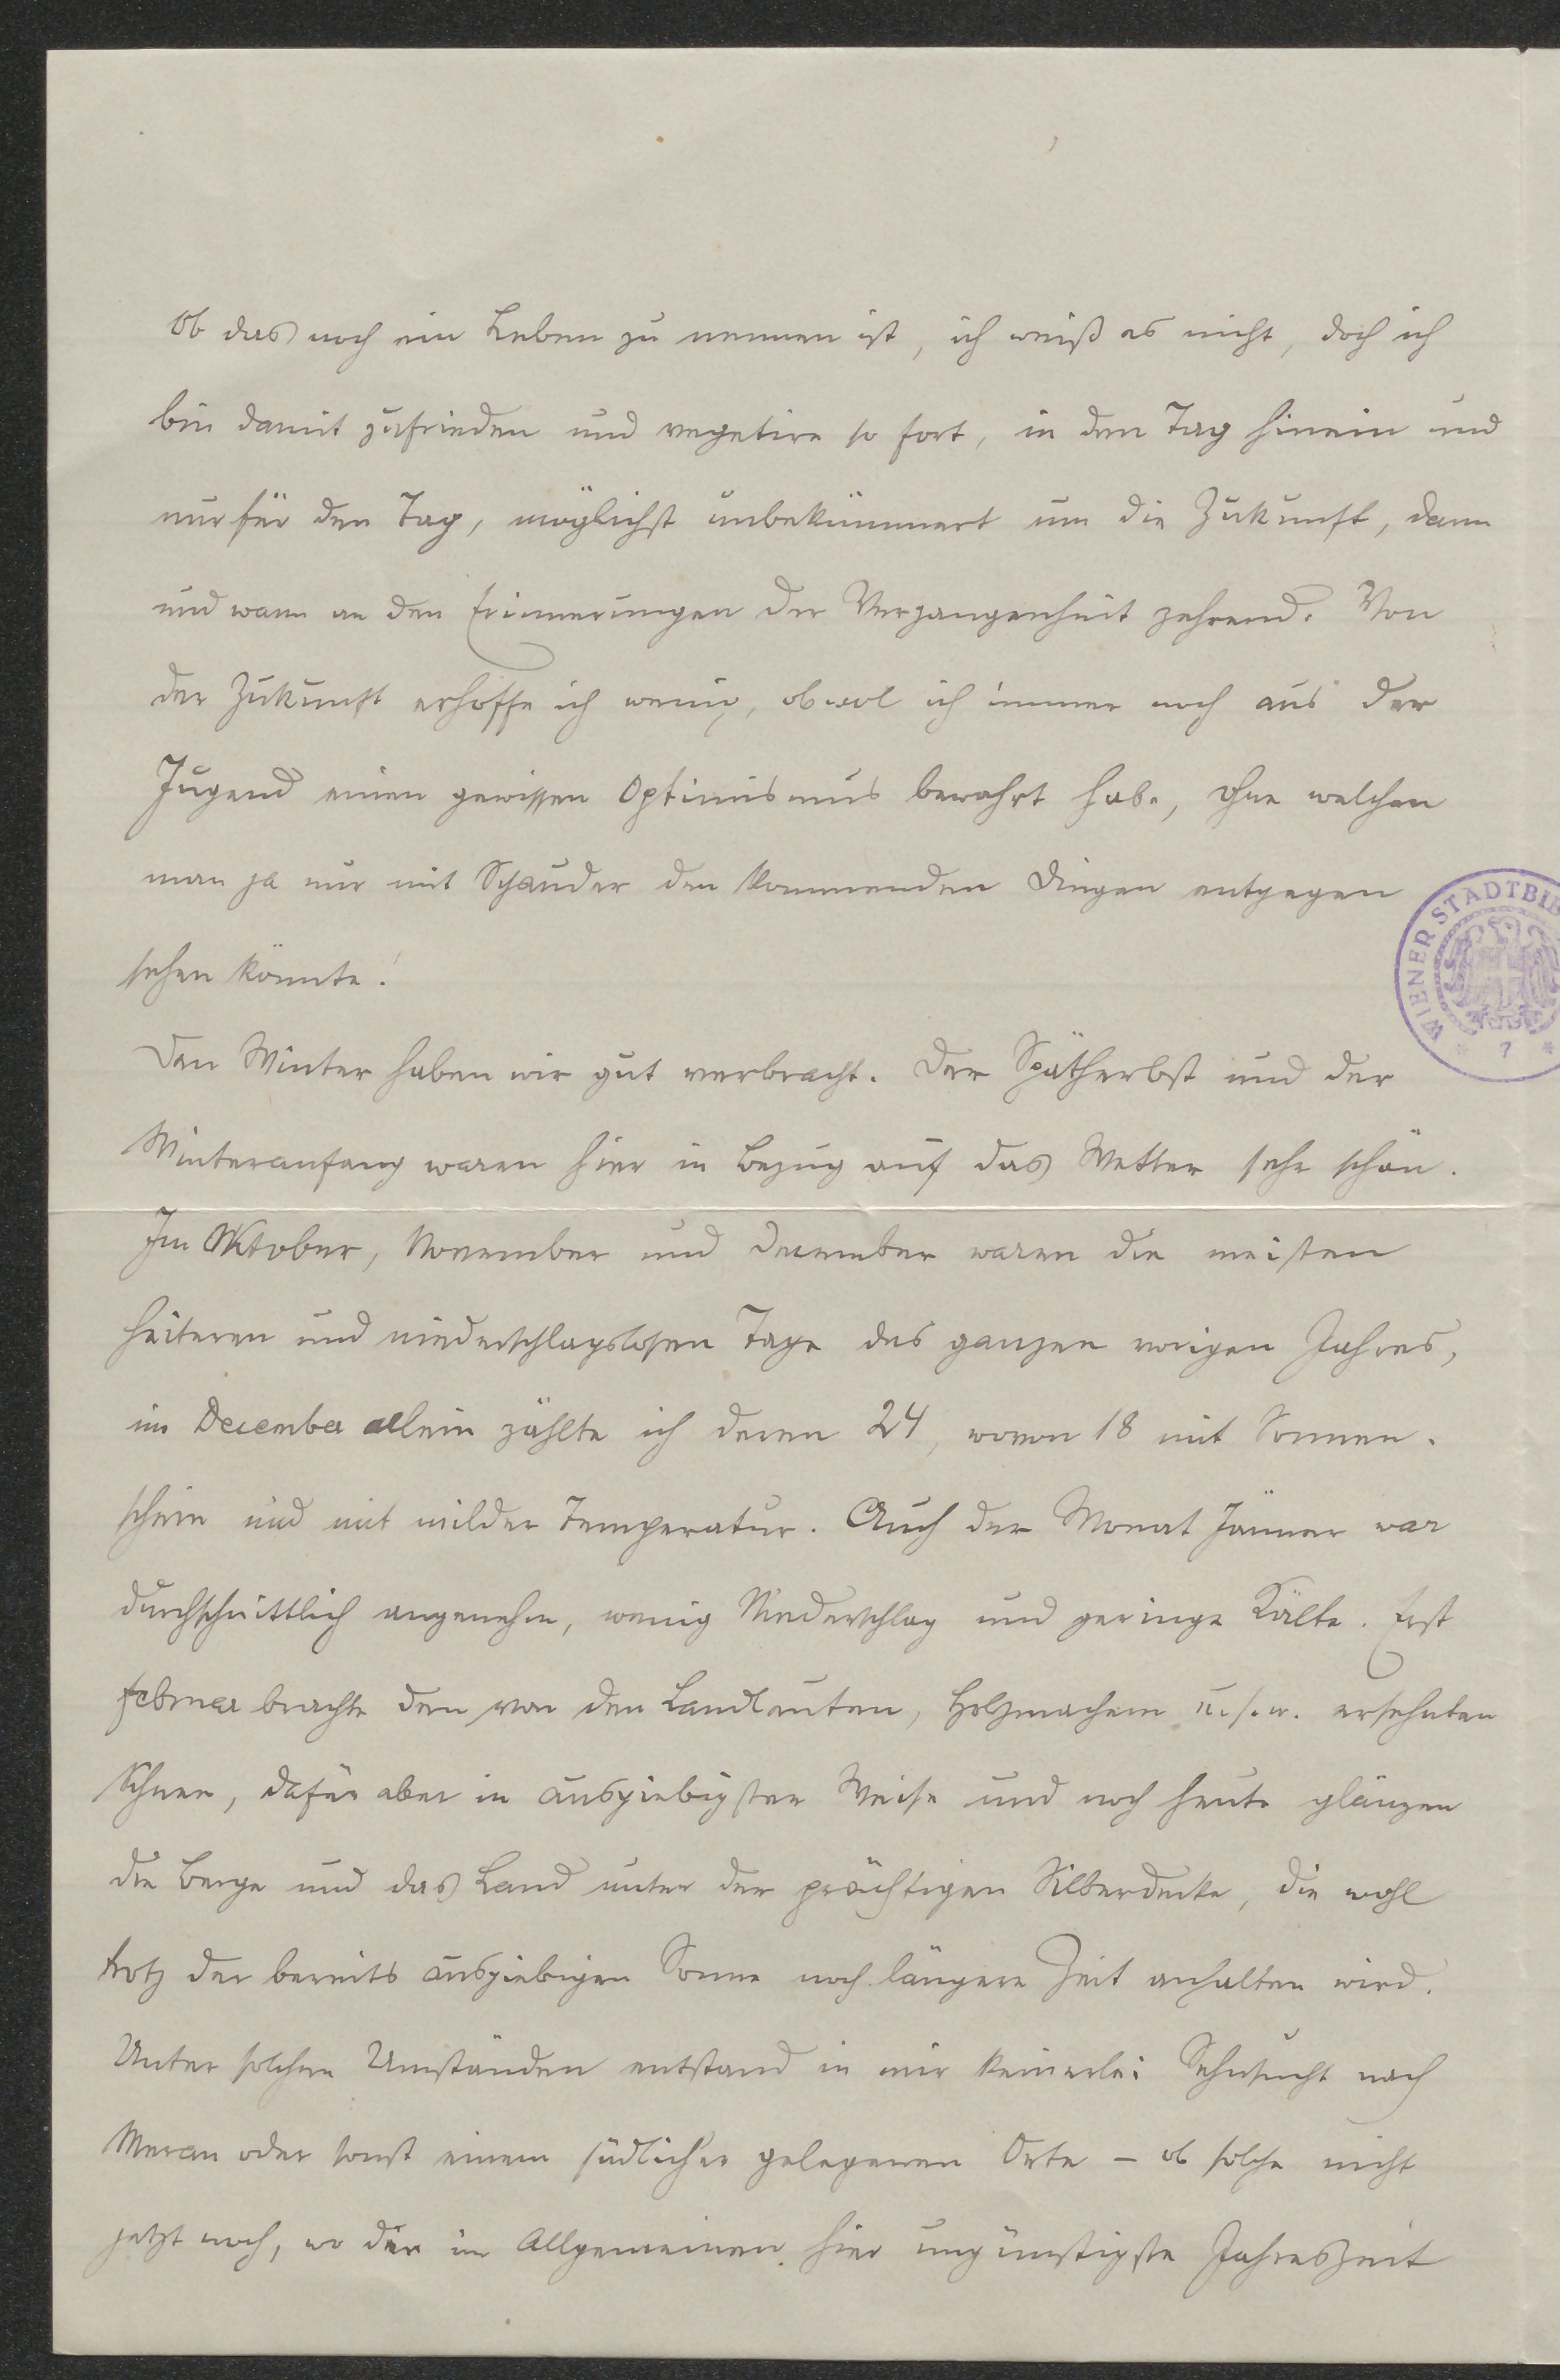 Ob das noch ein Leben zu nennen ist, ich weiß es nicht, doch ich
bin damit zufrieden und vegetire so fort, in den Tag hinein und
nur für den Tag, möglichst unbekümmert um die Zukunft, dann
und wann an den Erinnerungen der Vergangenheit zehrend. Von
der Zukunft erhoffe ich wenig, obwol ich immer noch aus der
Jugend einen gewissen Optimismus bewahrt habe, ohne welchen
man ja nur mit Schauder den kommenden Dingen entgegen
sehen könnte!
Den Winter haben wir gut verbracht. Der Spätherbst und der
Winteranfang waren hier in Bezug auf das Wetter sehr schön.
Im Oktober, November und December waren die meisten
heiteren und niederschlagslosen Tage des ganzen vorigen Jahres,
im December allein zählte ich deren 24, wovon 18 mit Sonnen-
schein und mit milder Temperatur. Auch der Monat Jänner war
durchschnittlich angenehm, wenig Niederschlag und geringe Kälte. Erst
Februar brachte den von den Landleuten, Holzmachern u.s.w. ersehnten
Schnee, dafür aber in ausgiebigster Weise und noch heute glänzen
die Berge und das Land unter der prächtigen Silberdecke, die wohl
trotz der bereits ausgiebigen Sonne noch längere Zeit anhalten wird.
Unter solchen Umständen entstand in mir keinerlei Sehnsucht nach
Meran oder sonst einem südlicher gelegenen Orte – ob solche nicht
jetzt noch, wo die im Allgemeinen hier ungünstigste Jahreszeit
WIENER STADTBIB
* 7 *